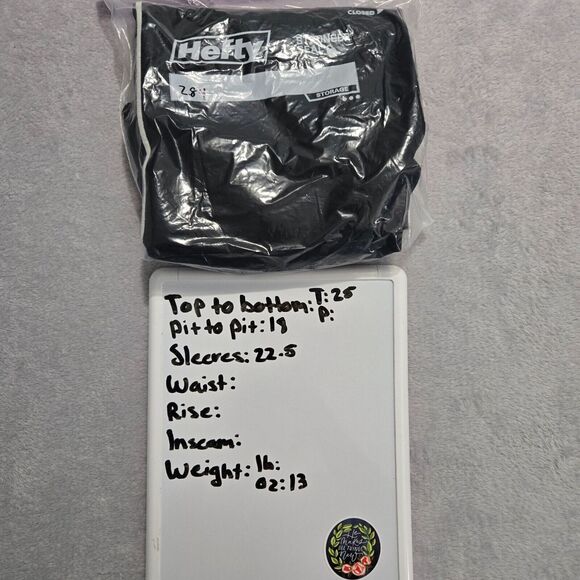 CLOSED
Hefty
STORAGE
284
Top to bottom: T: 25
P:
pit to pit: 18
Sleeves: 22.5
Waist:
Rise:
Inseam:
Weight: lb:
oz: 13